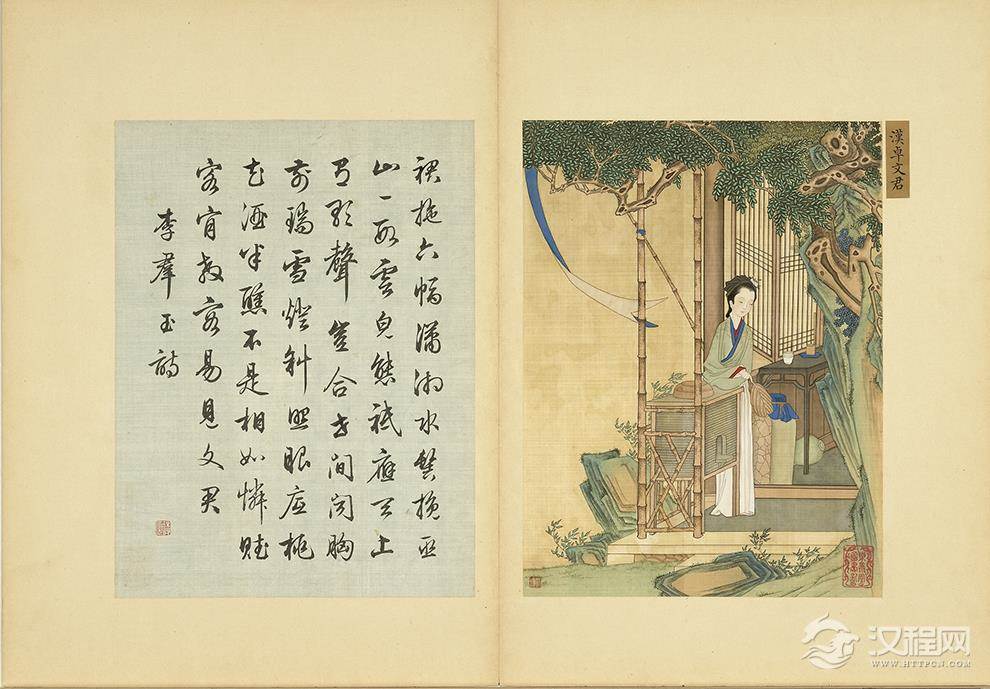 裙拖六幅瀟湘水鬟挽巫
山一段雲皃態祗應天上
有歌聲豈合世間聞胸
前瑞雪燈斜照眼底桃
花酒半醺不是相如憐賦
客肯教容易見文君
李羣玉詩
漢卓文君
汉程网
WWW.HTTPCN.COM